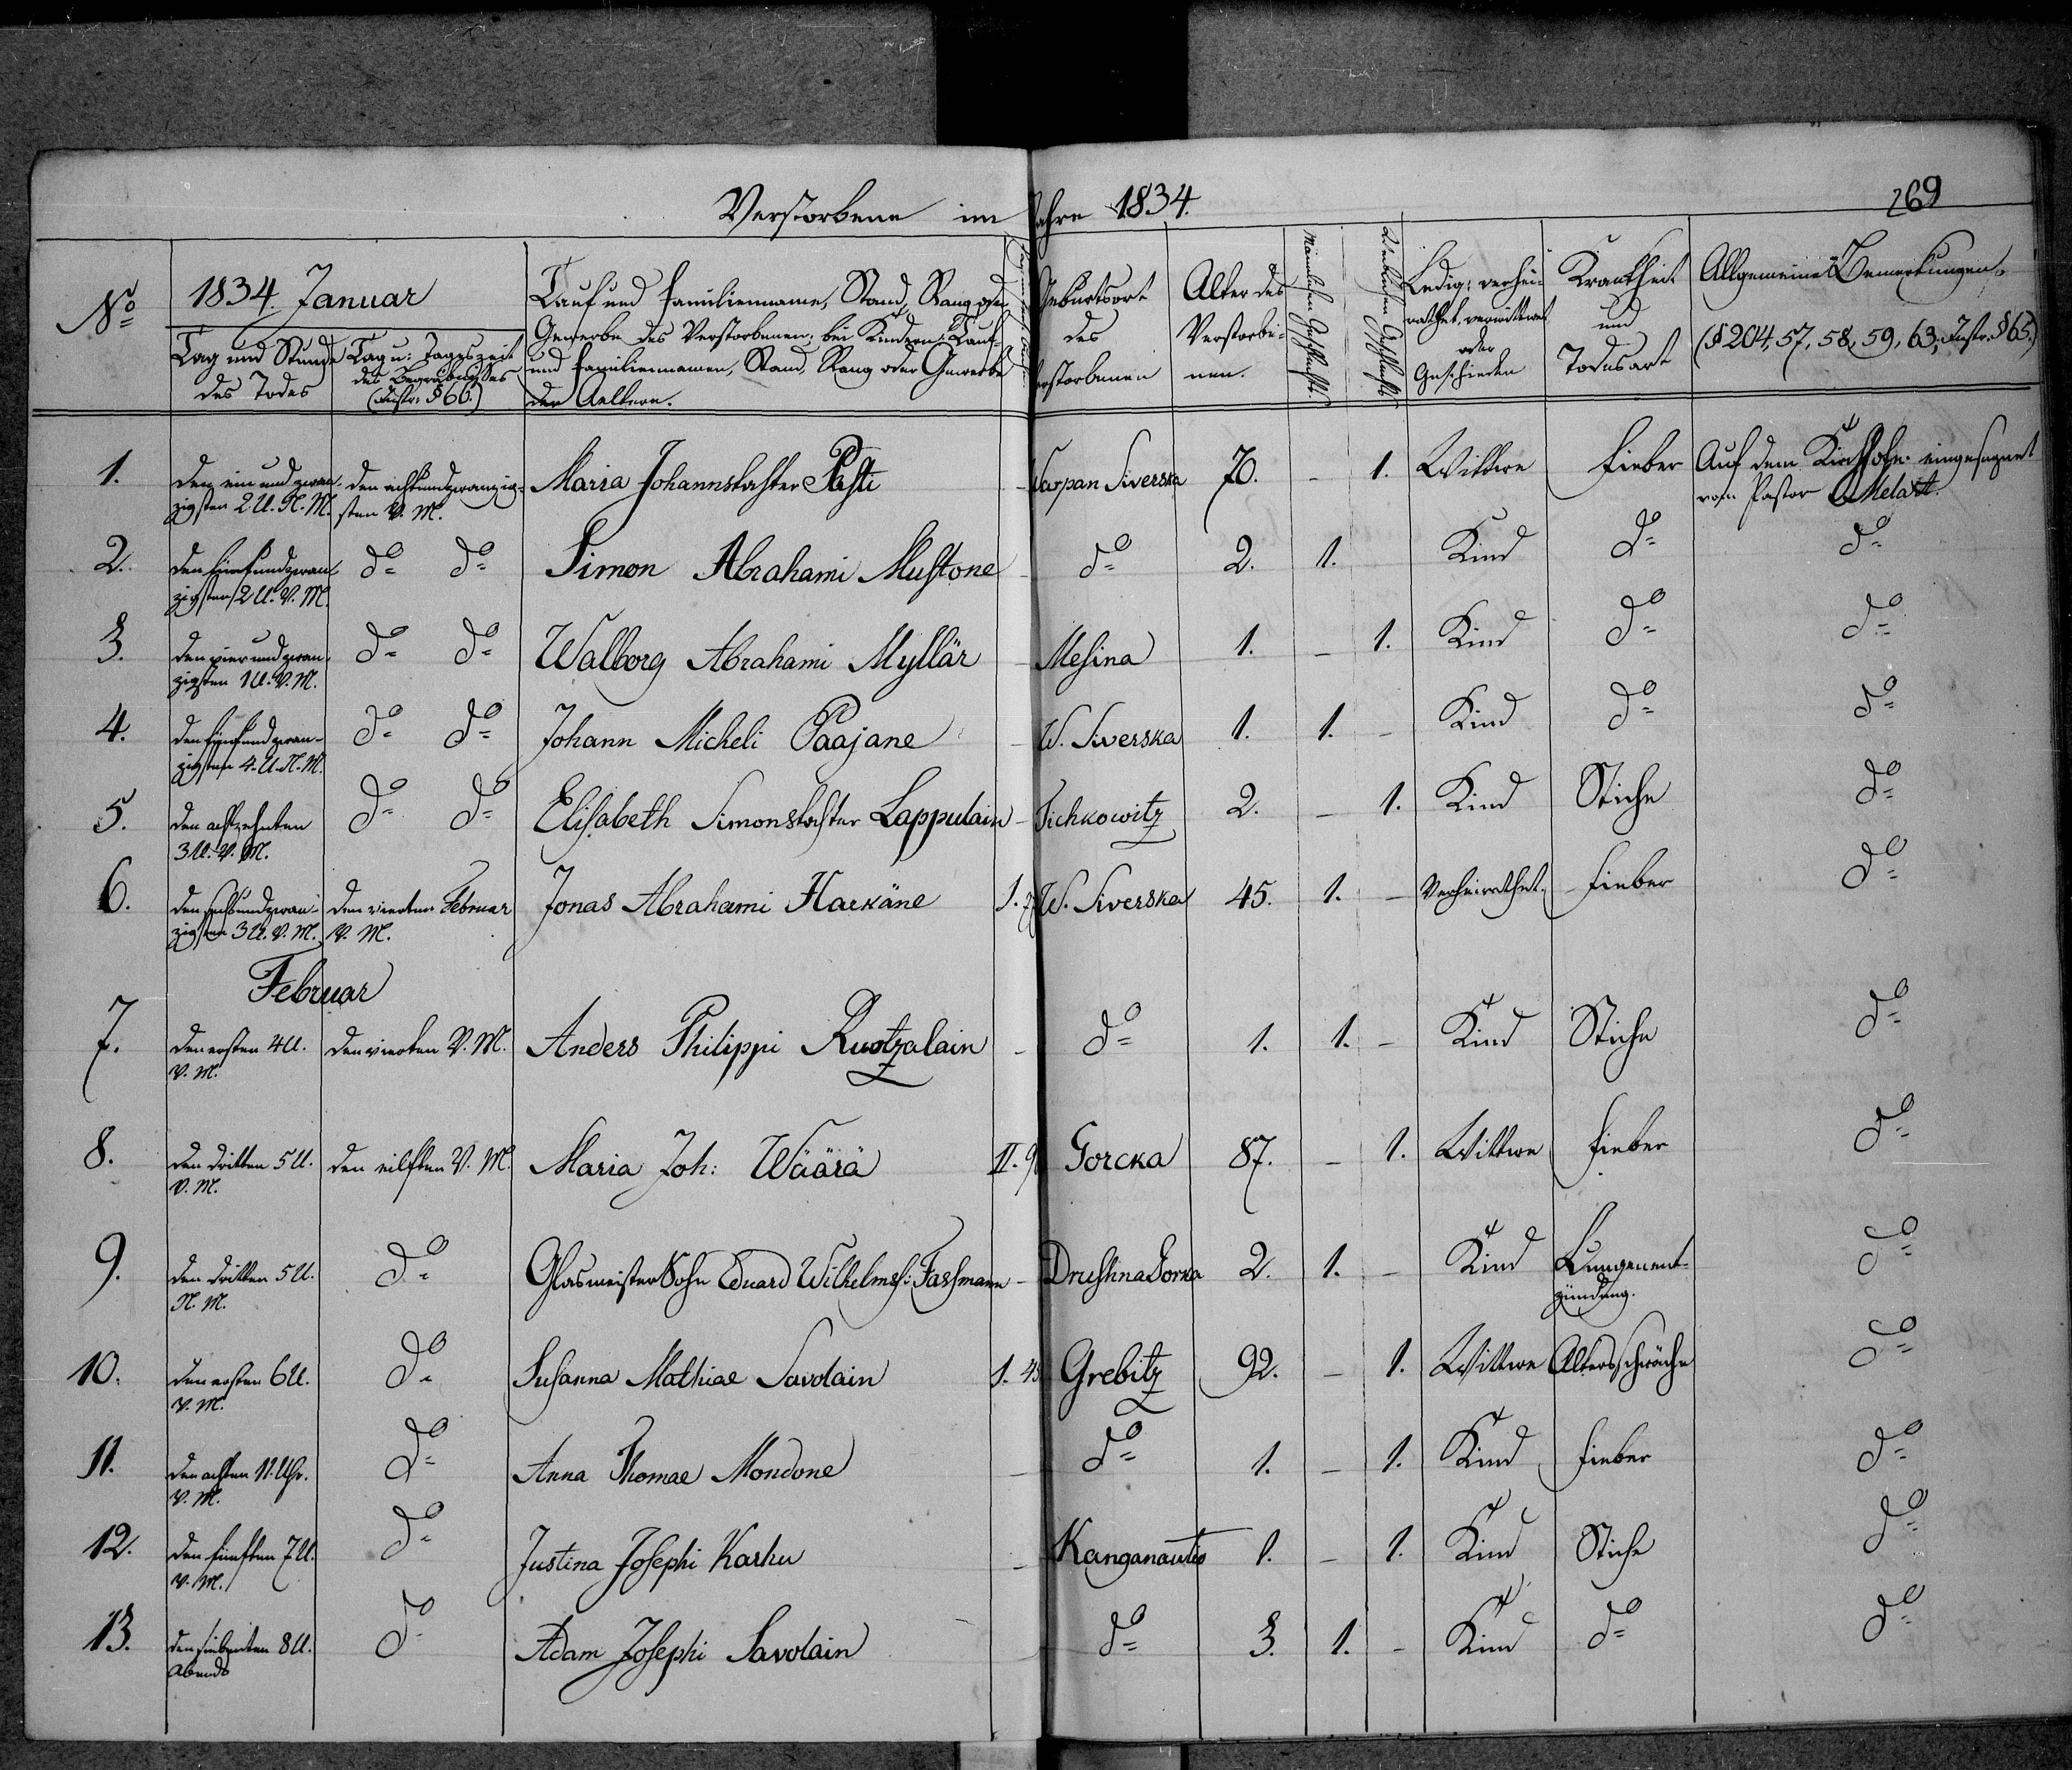 Verstorbene im Jahre 1834.
269
No
1834. Januar
Tag und Stunde des Todes
Tag u: Tageszeit des Begräbnisses (Instr: § 60.)
Tauf und Familienname, Stand, Rang oder
Gewerbe des Verstorbenen; bei Kindern: Tauf-
und Familiennamen, Stand, Rang oder Gewerbe
der Aeltern.
Geburtsort des Verstorbenen
Alter des Verstorbe-nen.
Männlichen Geschlechts.
Weiblichen Geschlechts
Ledig, verhei-rathet, verwittwet oder Geschieden
Krankheit und Todesart
Allgemeine Bemerkungen.
(§ 204, 57, 58, 59, 63; Instr. § 65.)
1. den ein und zwan- den achtundzwanzig- Maria Johannstochter Pasti - Warpan Siverska 70. - 1. Wittwe Fieber Auf dem Kirchhofe eingesegnet
zigsten 2 U. N. M. sten V. M. vom Pastor Melart.
2. den fünfundzwan- do do Simon Abrahami Mustone - do 2. 1. Kind do do
zigsten 2 U. V. M.
3. den vier und zwan- do do Walborg Abrahami Myllär - Mesina 1. - 1. Kind do do
zigsten 1 U. V. M.
4. den fünfundzwan- do do Johann Micheli Paajane - W. Siverska 1. 1. - Kind do do
zigsten 4. U. N. M.
5. den achtzehnten do do Elisabeth Simonstochter Lappulain - Tichkowitz 2. - 1. Kind Stiche do
3 U. V. M.
6. den sechsundzwan- den vierten Februar Jonas Abrahami Harkäne 1. 7 W. Siverska 45. 1. - Verheirathet. Fieber do
zigsten 3 U. V. M. V. M.
Februar
7. den ersten 4 U. den vierten V. M. Anders Philippi Ruotzalain - do 1. 1. - Kind Stiche do
V. M.
8. den dritten 5 U. den eilften V. M. Maria Joh: Wäärä II. 9 Gorcka 87. - 1. Wittwe Fieber do
V. M.
9. den dritten 5 U. do Glasmeister Sohn Eduard Wilhelms: Fassmann - Drushna Gorka 2. 1. - Kind Lungenent- do
N. M. zündung.
10. den ersten 6 U. do Susanna Mathiae Savolain 1. 45 Grebitz 92. - 1. Wittwe Altersschwäche do
V. M.
11. den achten 11. Uhr. do Anna Thomae Mondone - do 1. - 1. Kind Fieber do
V. M.
12. den fünften 7 U. do Justina Josephi Karhu - Kanganautio 1. - 1. Kind Stiche do
V. M.
13. den siebenten 8 U. do Adam Josephi Savolain do 3. 1. - Kind do do
Abends